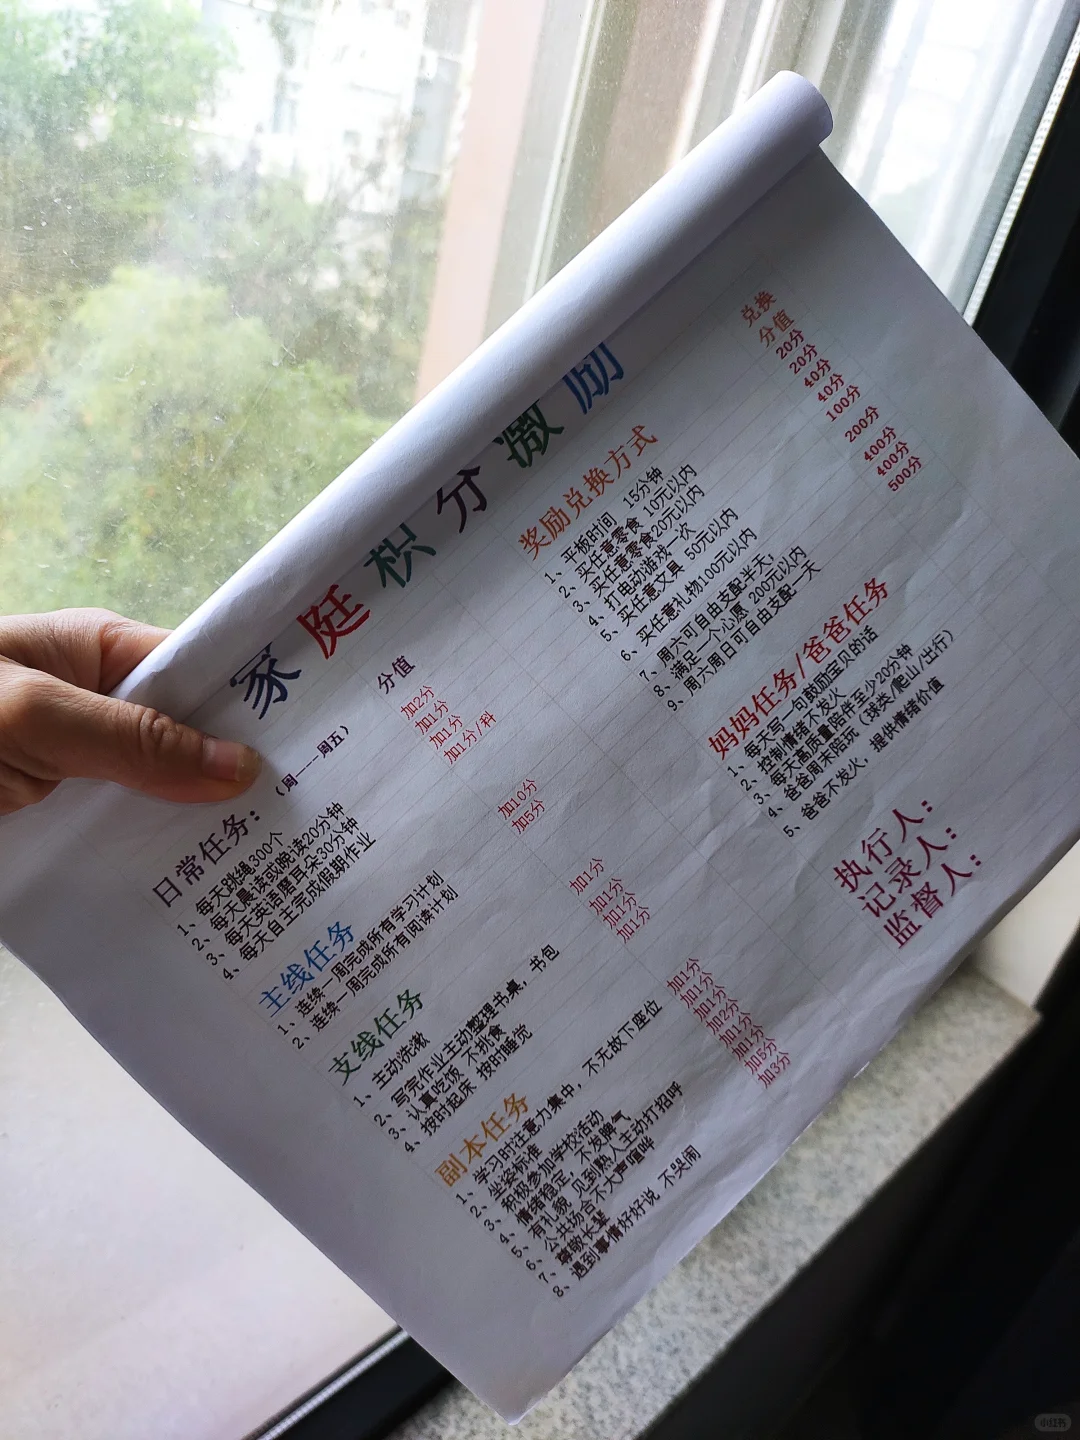 家庭积分激励
日常任务：（周一——周五） 分值
1、每天跳绳300个 加2分
2、每天晨读或晚读20分钟 加1分
3、每天英语磨耳朵30分钟 加1分
4、每天自主完成假期作业 加1分/科
主线任务
1、连续一周完成所有学习计划 加10分
2、连续一周完成所有阅读计划 加5分
支线任务
1、主动洗漱 加1分
2、写完作业主动整理书桌，书包 加1分
3、认真吃饭 不挑食 加1分
4、按时起床 按时睡觉 加1分
副本任务
1、学习时注意力集中，不无故下座位 加1分
2、坐姿标准 加1分
3、积极参加学校活动 加1分
4、情绪稳定，不发脾气 加2分
5、有礼貌 见到熟人主动打招呼 加1分
6、公共场合不大声喧哗 加1分
7、尊敬长辈 加5分
8、遇到事情好好说 不哭闹 加3分
奖励兑换方式 兑换分值
1、平板时间 15分钟 20分
2、买任意零食 10元以内 20分
3、买任意零食20元以内 40分
4、打电动游戏一次 40分
5、买任意文具 50元以内 100分
6、买任意礼物100元以内 200分
7、周六可自由支配半天， 400分
8、满足一个心愿 200元以内 400分
9、周六周日可自由支配一天 500分
妈妈任务/爸爸任务
1、每天写一句鼓励宝贝的话
2、控制情绪不发火
3、每天高质量陪伴至少20分钟
4、爸爸周末陪玩（球类/爬山/出行）
5、爸爸不发火，提供情绪价值
执行人：
记录人：
监督人：
小红书